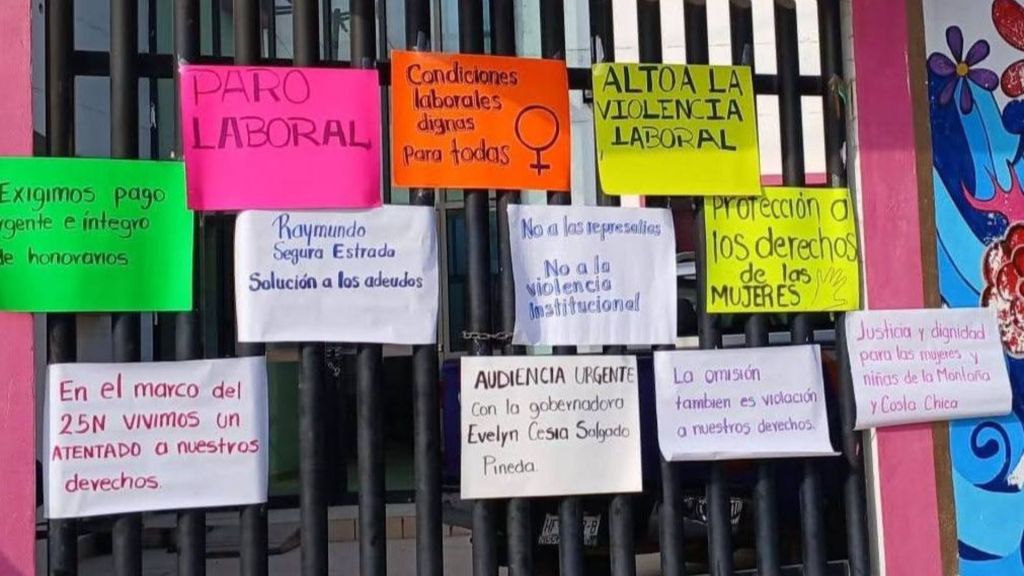 PARO
LABORAL
Condiciones
laborales
dignas
para todas
ALTO A LA
VIOLENCIA
LABORAL
Exigimos pago
rgente e íntegro
de honorarios
Raymundo
Segura Estrada
Solución a los adeudos
No a las represalias
No a la
violencia
institucional
Protección a
los derechos
de las
MUJERES
En el marco del
25N VIVIMOS UN
ATENTADO a nuestros
derechos.
AUDIENCIA URGENTE
con la gobernadora
Evelyn Cesia Salgado
Pineda.
La omisión
tambien es violación
a nuestros derechos.
Justicia y dignidad
para las mujeres y
niñas de la Montaña
y Costa Chica